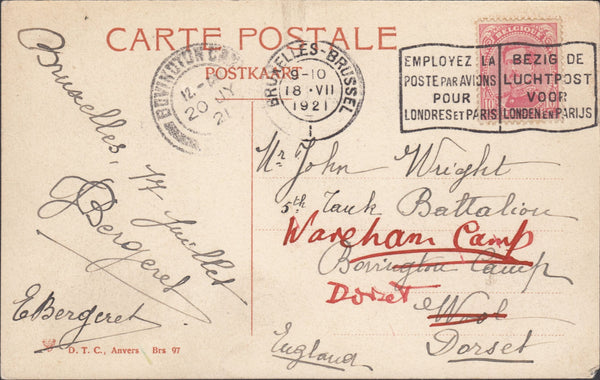 CARTE POSTALE
POSTKAART
BOVINGTON CAMP
12-
20 JY
21
BRUXELLES-BRUSSEL
9-10
18·VII
1921
EMPLOYEZ LA
POSTE PAR AVIONS
POUR
LONDRES ET PARIS
BEZIG DE
LUCHTPOST
VOOR
LONDEN EN PARIJS
BELGIQUE
Bruxelles, 17 Juillet
J Bergeret
EBergeret
Mr John Wright
5th Tank Battalion
Wareham Camp
Bovington Camp
Dorset
Wool
Dorset
England
D. T. C., Anvers Brs 97